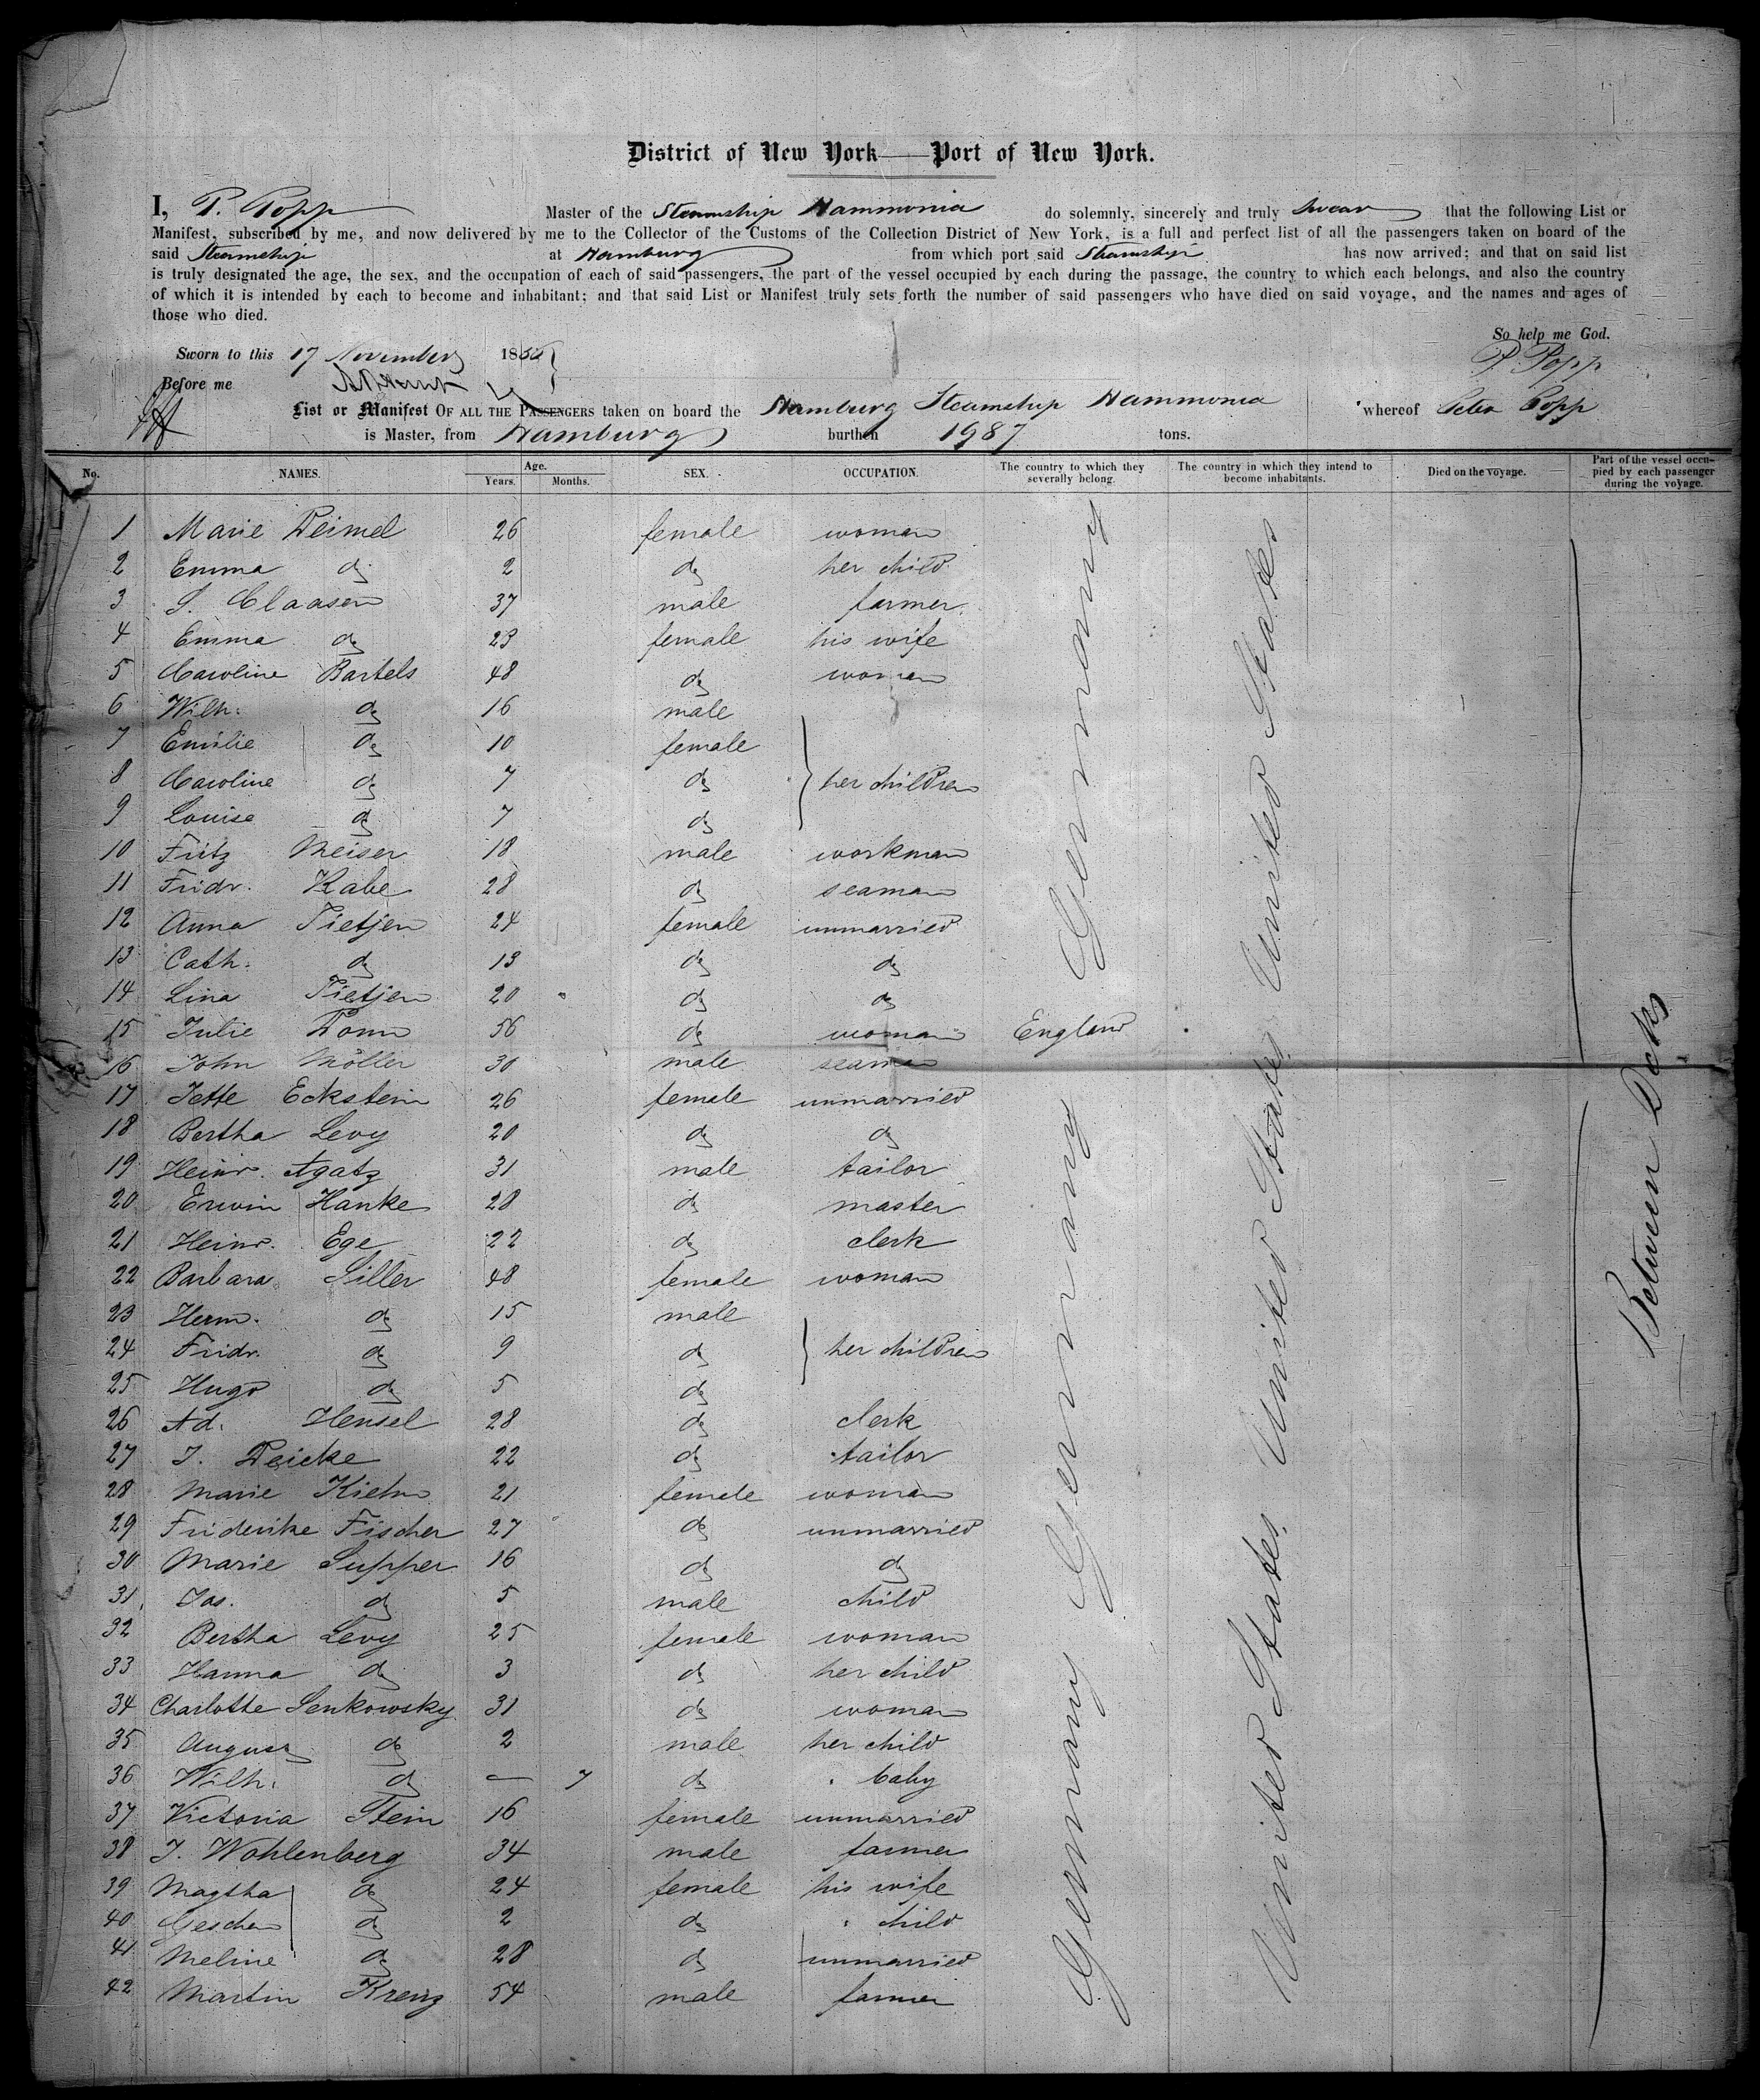 District of New York — Port of New York.
I, P. Popp Master of the Steamship Hammonia do solemnly, sincerely and truly swear that the following List or
Manifest, subscribed by me, and now delivered by me to the Collector of the Customs of the Collection District of New York, is a full and perfect list of all the passengers taken on board of the
said Steamship at Hamburg from which port said Steamship has now arrived; and that on said list
is truly designated the age, the sex, and the occupation of each of said passengers, the part of the vessel occupied by each during the passage, the country to which each belongs, and also the country
of which it is intended by each to become and inhabitant; and that said List or Manifest truly sets forth the number of said passengers who have died on said voyage, and the names and ages of
those who died.
So help me God.
Sworn to this 17 November 18
P Popp
Before me
List or Manifest OF ALL THE PASSENGERS taken on board the Hamburg Steamship Hammonia whereof Peter Popp
is Master, from Hamburg burthen 1987 tons.
No. NAMES. Age. Years. Months. SEX. OCCUPATION. The country to which they severally belong. The country in which they intend to become inhabitants. Died on the voyage. Part of the vessel occupied by each passenger during the voyage.
1 Marie Deimel 26 female woman
2 Emma do 2 do her child
3 S. Claasen 37 male farmer
4 Emma do 23 female his wife
5 Caroline Bartels 48 do woman
6 Wilh. do 16 male
7 Emilie do 10 female
8 Caroline do 7 do her children
9 Louise do 7 do
10 Fritz Meiser 18 male workman
11 Fridr. Kabe 28 do seaman
12 Anna Tietjen 24 female unmarried
13 Cath. do 13 do do
14 Lina Tietjen 20 do do
15 Julie Donn 56 do woman England
16 John Möller 30 male seaman
17 Jette Eckstein 26 female unmarried
18 Bertha Levy 20 do do
19 Heinr. Agatz 31 male tailor
20 Erwin Hanke 28 do master
21 Heinr. Ege 22 do clerk
22 Barbara Siller 48 female woman
23 Herm. do 15 male
24 Fridr. do 9 do her children
25 Hugo do 5 do
26 Ad. Hensel 28 do clerk
27 J. Deicke 22 do tailor
28 Marie Kiehn 21 female woman
29 Friderike Fischer 27 do unmarried
30 Marie Supper 16 do do
31 Jos. do 5 male child
32 Bertha Levy 25 female woman
33 Hanna do 3 do her child
34 Charlotte Senkowsky 31 do woman
35 August do 2 male her child
36 Wilh. do — 7 do baby
37 Victoria Stein 16 female unmarried
38 J. Wohlenberg 34 male farmer
39 Magtha do 24 female his wife
40 Geschen do 2 do child
41 Meline do 28 do unmarried
42 Martin Krenz 54 male farmer
Germany
Germany
Germany
United States
United States
United States
Between Decks